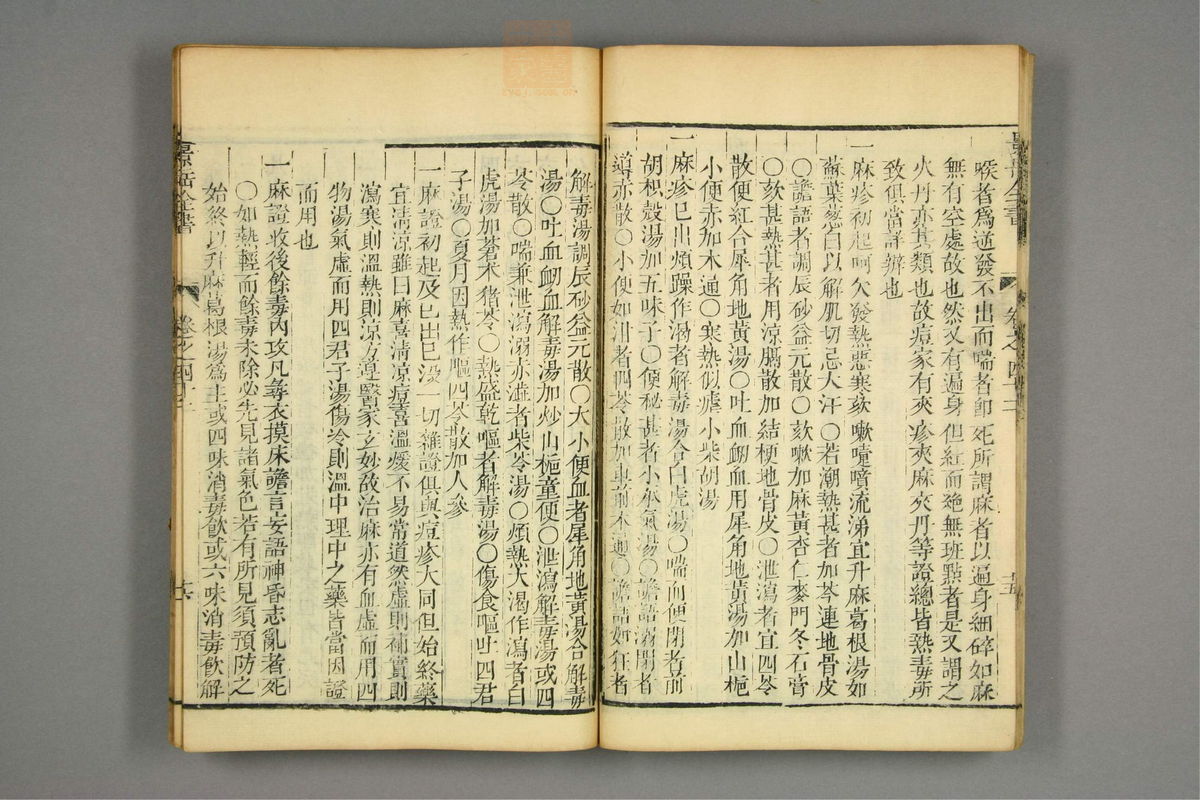 喉者爲逆發不出而喘者即死所謂麻者以遍身細碎如麻
無有空處故也然又有遍身但紅而絶無斑點者是又謂之
火丹亦其類也故痘家有夾疹夾麻夾丹等證總皆熱毒所
致俱當詳辨也
一麻疹初起呵欠發熱惡寒欬嗽嚏噴流涕宜升麻葛根湯加
蘇葉葱白以解肌切忌大汗〇若潮熱甚者加芩連地骨皮
〇譫語者調辰砂益元散〇欬嗽加麻黃杏仁麥門冬石膏
〇欬甚熱甚者用涼膈散加結梗地骨皮〇泄瀉者宜四苓
散便紅合犀角地黃湯〇吐血衂血用犀角地黃湯加山梔
小便赤加木通〇寒熱似瘧小柴胡湯
一麻疹已出煩躁作渴者解毒湯合白虎湯〇喘而便閉者前
胡枳殼湯加五味子〇便秘甚者小承氣湯〇譫語溺閉者
導赤散〇小便如泔者四苓散加車前木通〇譫語如狂者
解毒湯調辰砂益元散〇大小便血者犀角地黃湯合解毒
湯〇吐血衂血解毒湯加炒山梔童便〇泄瀉解毒湯或四
苓散〇喘兼泄瀉溺亦澁者柴苓湯〇煩熱大渴作瀉者白
虎湯加蒼朮猪苓〇熱盛乾嘔者解毒湯〇傷食嘔吐四君
子湯〇夏月因熱作嘔四苓散加人參
一麻證初起及已出已没一切雜證俱與痘疹大同但始終藥
宜淸涼雖曰麻喜淸涼痘喜溫煖不易常道然虛則補實則
瀉寒則溫熱則涼方是醫家玄妙故治麻亦有血虛而用四
物湯氣虛而用四君子湯傷冷則溫中理中之藥皆當因證
而用也
一麻證收後餘毒內攻凡尋衣摸床譫言妄語神昏志亂者死
〇如熱輕而餘毒未除必先見諸氣色若有所見須預防之
始終以升麻葛根湯爲主或四味消毒飲或六味消毒飲解
景岳全書
卷之四十三
十五
景岳全書
卷之四十三
十六